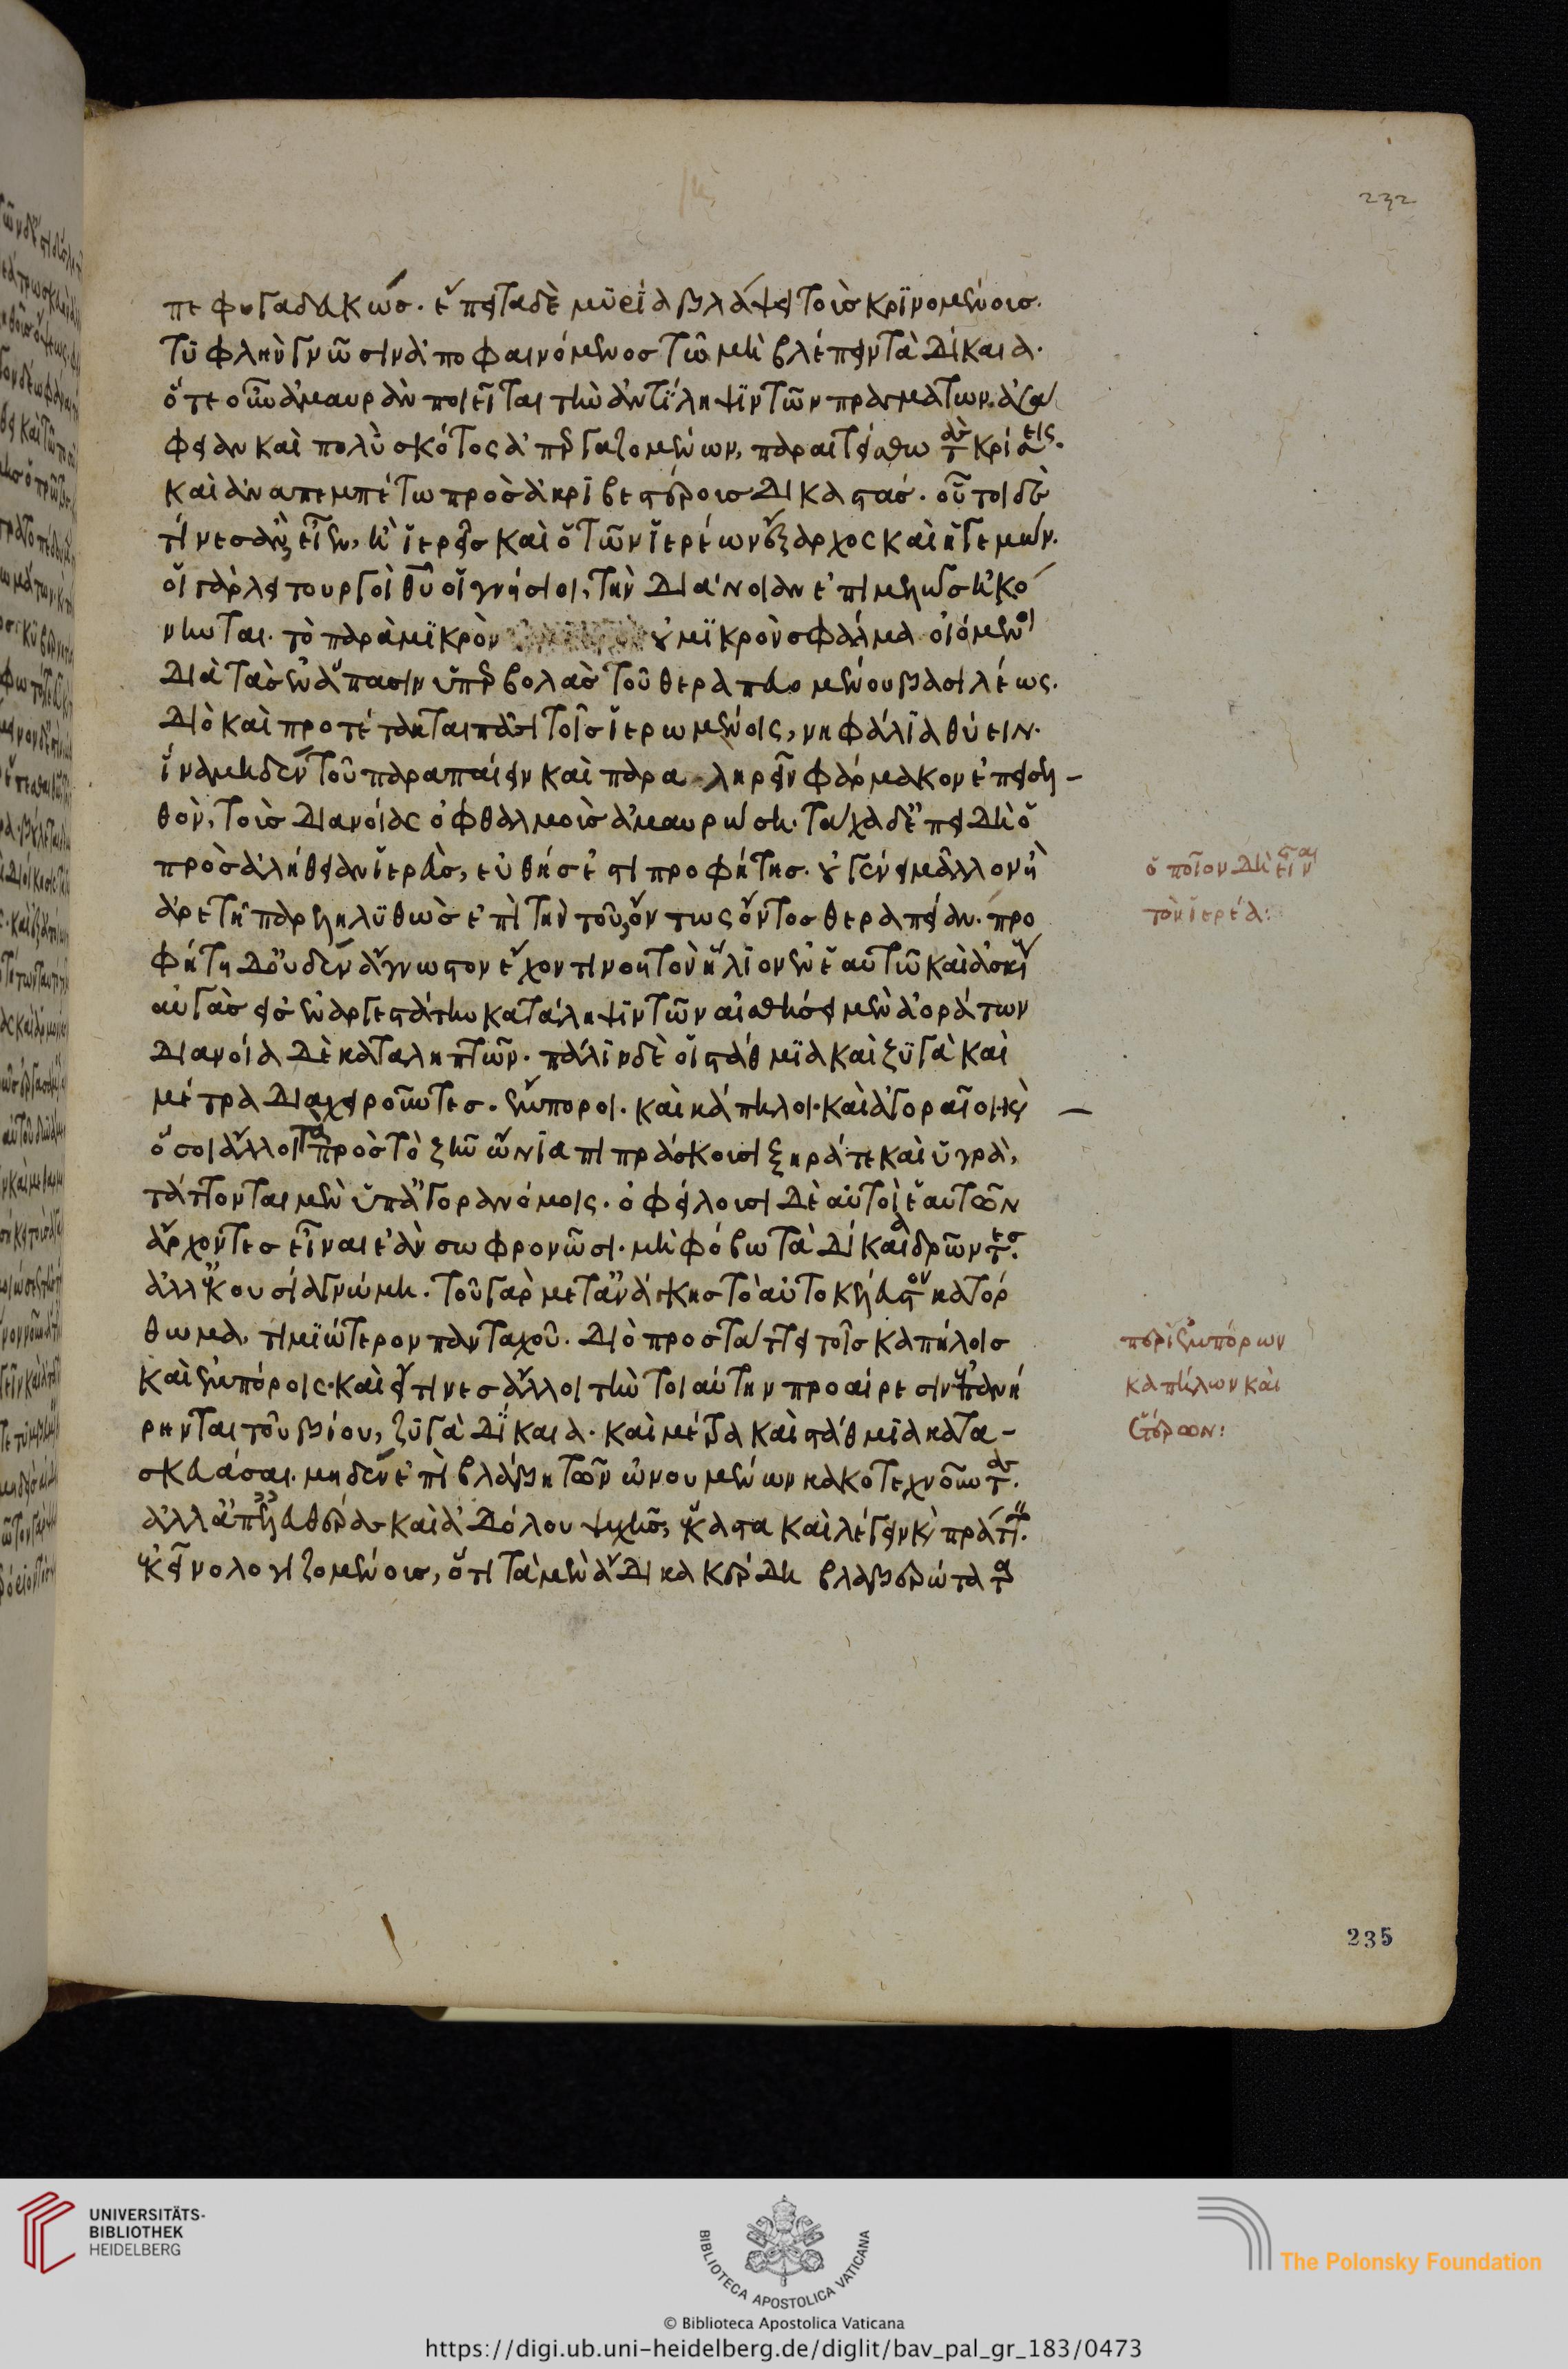 πεφυγαδευκώς. ἔπειτα δὲ μυρία βλάψει τοὺς κρινομένους.
τυφλὴν γνῶσιν ἀποφαινόμενος τῶ μὴ βλέπειν τὰ δίκαια.
ὅτε οὖν ἀμαυρὰν ποιεῖται τὴν ἀντίληψιν τῶν πραγμάτων. ἀσά
φειαν καὶ πολὺ σκότος ἀπεργαζομένων, παραιτείσθω τὰς κρίσεις.
καὶ ἀναπεμπέτω πρὸς ἀκριβεστέρους δικαστάς. οὗτοι δὲ
τίνες ἂν εἶεν, ἢ ἱερεῖς καὶ ὁ τῶν ἱερέων ἔξαρχος καὶ ἡγεμών.
οἱ γὰρ λειτουργοὶ θυ οἱ γνήσιοι, τὴν διάνοιαν ἐπιμελῶς ἠκό
νηνται. τὸ παρὰ μικρὸν οὐ μικρὸν σφάλμα οἰόμενοι
διὰ τὰς ἐν ἅπασιν ὑπερβολὰς τοῦ θεραπευομένου βασιλέως.
διὸ καὶ προτέτακται πᾶσι τοῖς ἱερωμένοις, νηφάλια θύειν.
ἵνα μηδὲν τοῦ παραπαίειν καὶ παραληρεῖν φάρμακον ἐπεισελ-
θὸν, τοὺς διανοίας ὀφθαλμοὺς ἀμαυρώση. τάχα δ' ἐπειδὴ ὁ
πρὸς ἀλήθειαν ἱερεὺς, εὐθύς ἐστι προφήτης. οὐ γένει μᾶλλον ἢ
ἀρετῆ παρεληλυθὼς ἐπὶ τὴν τοῦ ὄντως ὄντος θεραπείαν. προ
φήτη δ' οὐδὲν ἄγνωστον ἔχοντι νοητὸν ἥλιον ἐν ἑαυτῶ καὶ ἀσκίους
αὐγὰς εἰς ἐναργεστάτην κατάληψιν τῶν αἰσθήσει μὲν ἀοράτων
διανοία δὲ καταληπτῶν. πάλιν δὲ οἱ στάθμια καὶ ζυγὰ καὶ
μέτρα διαχειροῦντες. ἔμποροι. καὶ κάπηλοι. καὶ ἀγοραῖοι. καὶ
ὅσοι ἄλλοι τὰ πρὸς τὸ ζῆν ὤνια πιπράσκουσι ξηρά τε καὶ ὑγρὰ,
τάττονται μὲν ὑπ' ἀγορανόμοις. ὀφείλουσι δὲ αὐτοὶ ἑαυτῶν
ἄρχοντες εἶναι ἐὰν σωφρονῶσι. μὴ φόβω τὰ δίκαια δρῶντες.
ἀλλ' ἑκουσία γνώμη. τοῦ γὰρ μετ' ἀνάγκης τὸ αὐτοκέλευστον κατόρ
θωμα, τιμιώτερον πανταχοῦ. διὸ προστάττει τοῖς καπήλοις
καὶ ἐμπόροις. καὶ εἴ τινες ἄλλοι τὴν τοιαύτην προαίρεσιν ἐπανή
ρηνται τοῦ βίου, ζυγὰ δίκαια. καὶ μέτρα καὶ στάθμια κατα-
σκευάσαι. μηδὲν ἐπὶ βλάβη τῶν ὠνουμένων κακοτεχνοῦντας.
ἀλλ' ἀπ' ἐλευθέρας καὶ ἀδόλου ψυχῆς, ἕκαστα καὶ λέγειν καὶ πράττειν.
ἐκεῖνο λογιζομένους, ὅτι τὰ μὲν ἄδικα κέρδη βλαβερώτατα
ὁποῖον δεῖ εἶναι
τὸν ἱερέα:
περὶ ἐμπόρων
καπήλων καὶ
ἑτέρων:
232
235
UNIVERSITÄTS-
BIBLIOTHEK
HEIDELBERG
BIBLIOTECA APOSTOLICA VATICANA
The Polonsky Foundation
© Biblioteca Apostolica Vaticana
https://digi.ub.uni-heidelberg.de/diglit/bav_pal_gr_183/0473